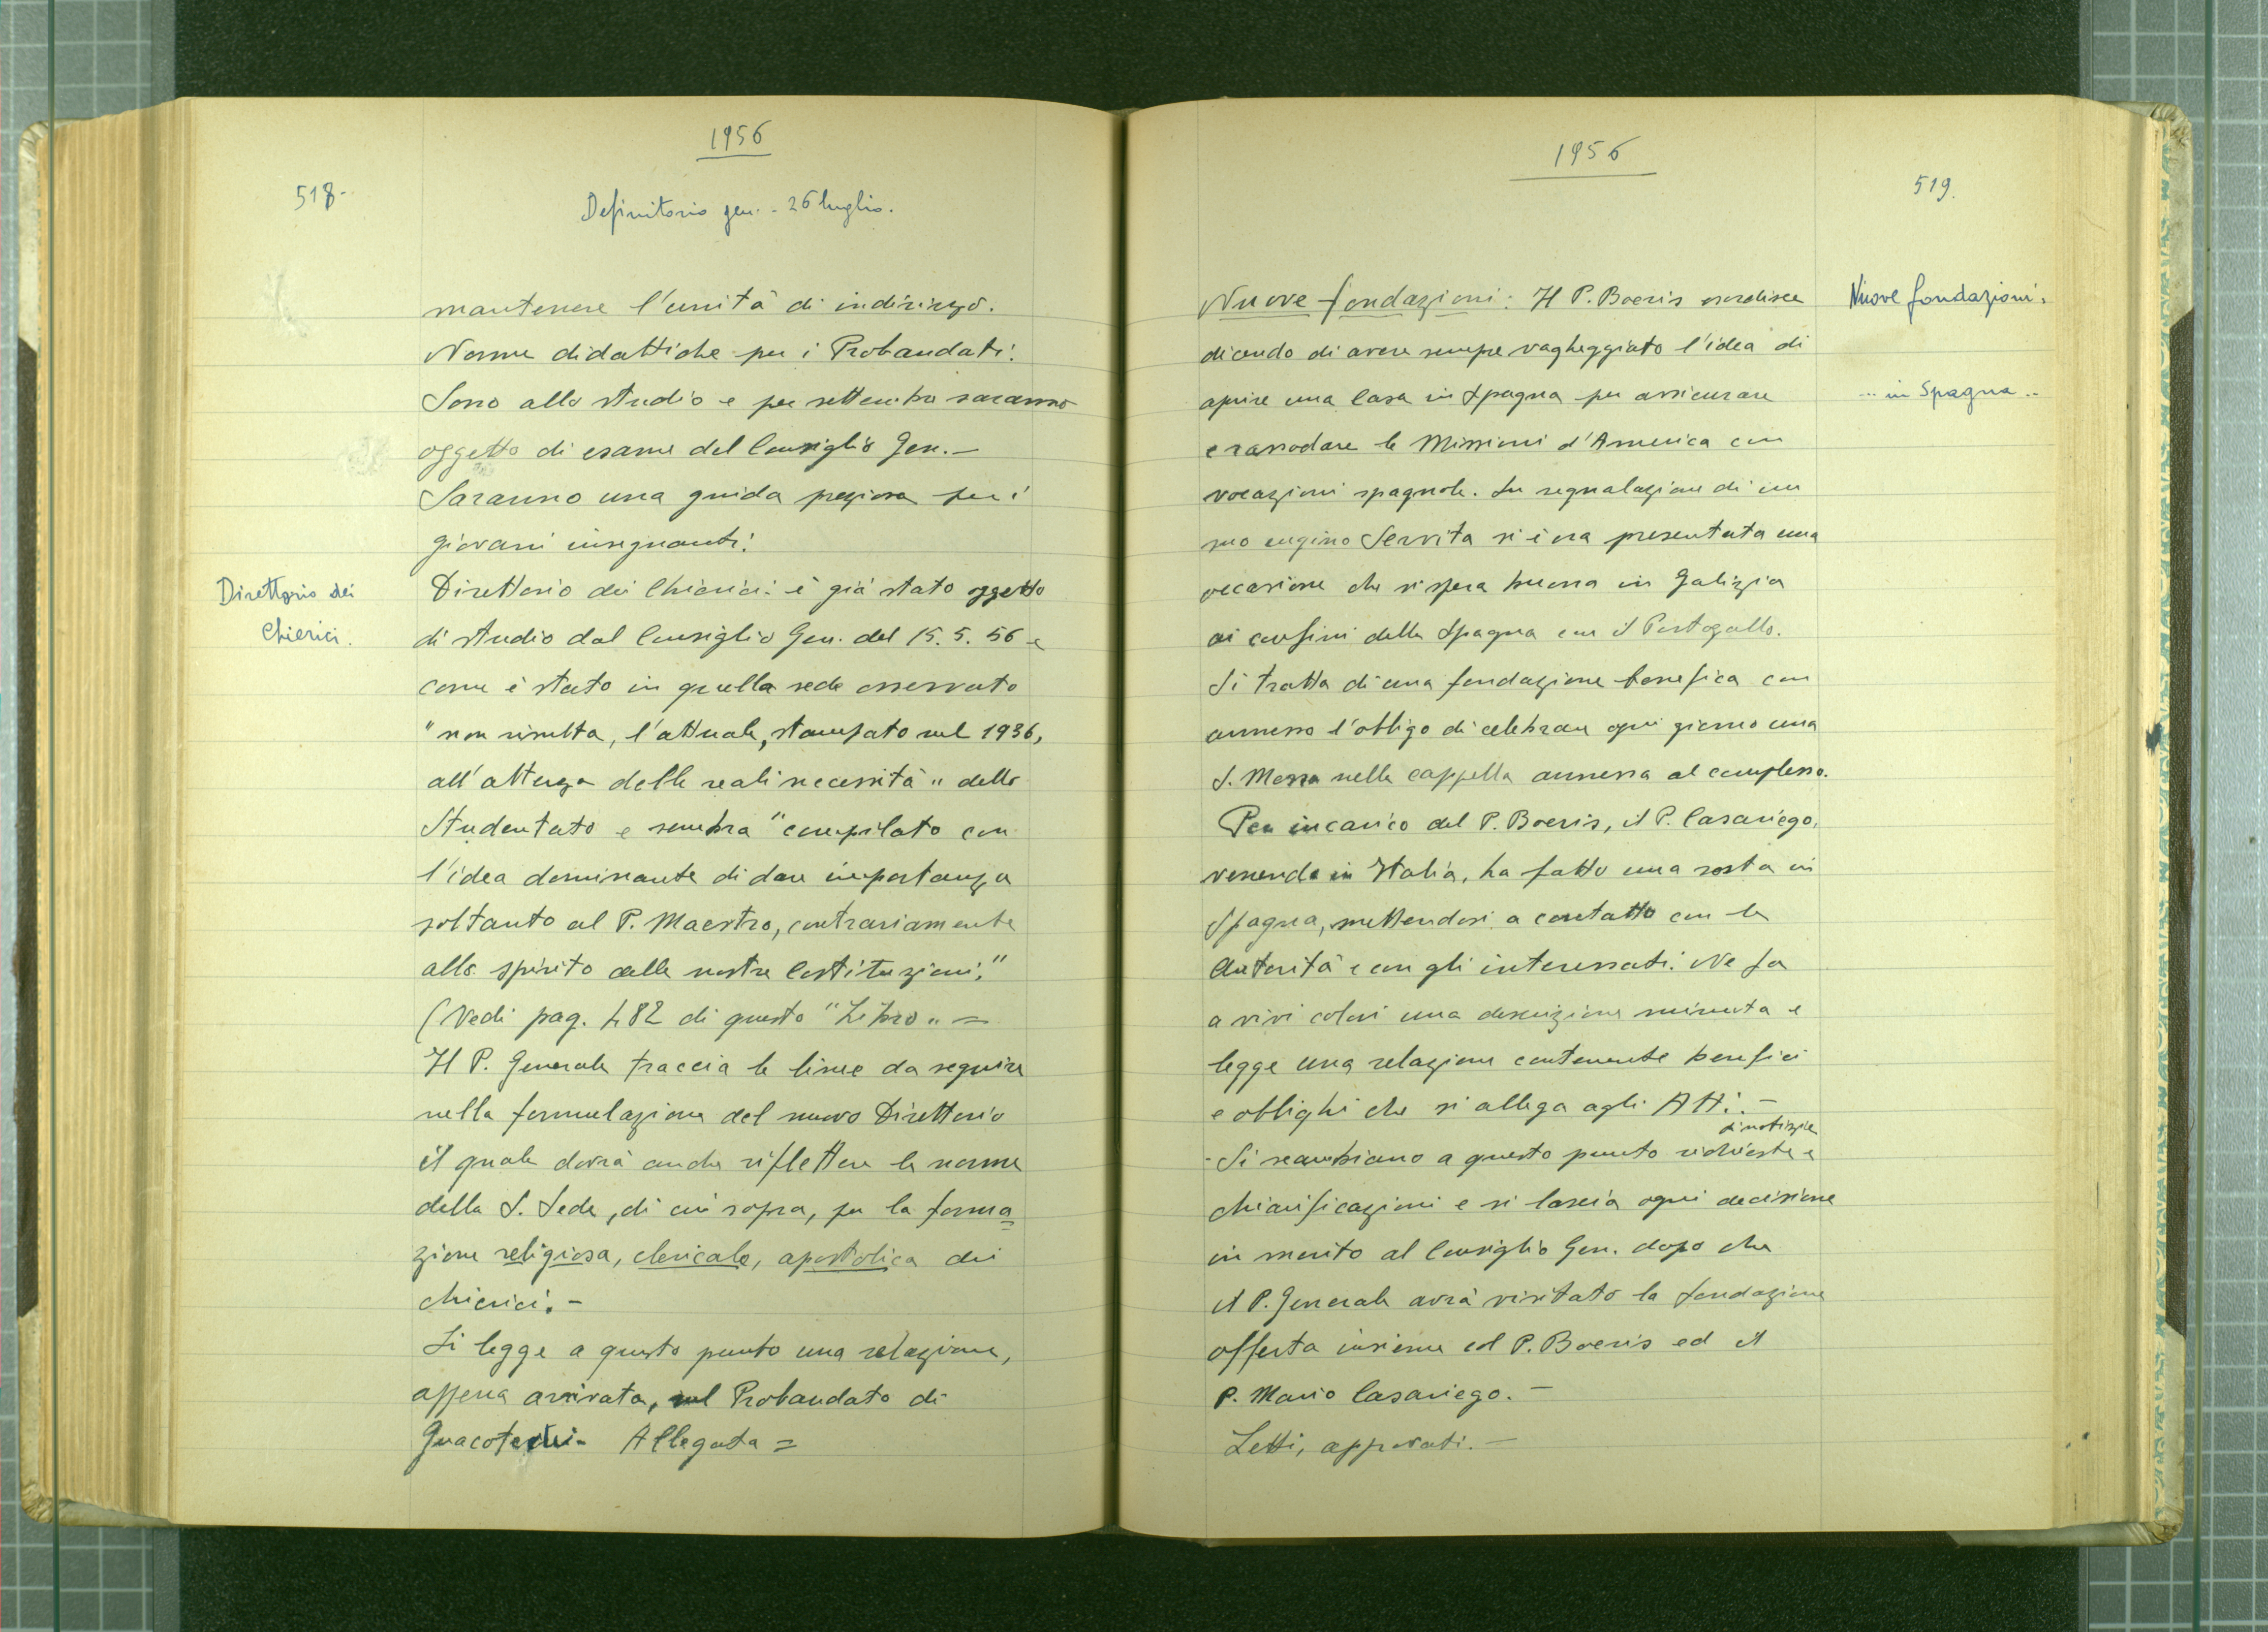 1956
518-
Definitorio gen. - 26 luglio.
mantenere l'unità di indirizzo.
Norme didattiche per i Probandati:
Sono allo studio e per settembre saranno
oggetto di esame del Consiglio Gen. -
Saranno una guida preziosa per i
giovani insegnanti.
Direttorio dei
Chierici.
Direttorio dei Chierici: è già stato oggetto
di studio dal Consiglio Gen. del 15. 5. 56 e
come è stato in quella sede osservato
"non risulta, l'attuale, stampato nel 1936,
all'altezza delle reali necessità" dello
Studentato e sembra "compilato con
l'idea dominante di dare importanza
soltanto al P. Maestro, contrariamente
allo spirito delle nostre Costituzioni."
(Vedi pag. 482 di questo "Libro" =
Il P. Generale traccia le linee da seguire
nella formulazione del nuovo Direttorio
il quale dovrà anche riflettere le norme
della S. Sede, di cui sopra, per la forma=
zione religiosa, clericale, apostolica dei
chierici. -
Si legge a questo punto una relazione,
appena arrivata, sul Probandato di
Allegata =
1956
519.
Nuove fondazioni: Il P. Boeris esordisce
Nuove fondazioni.
dicendo di avere sempre vagheggiato l'idea di
aprire una Casa in Spagna per assicurare
... in Spagna ..
e rassodare le Missioni d'America con
vocazioni spagnole. Su segnalazione di un
suo cugino Servita si era presentata una
occasione che si spera buona in Galizia
ai confini della Spagna con il Portogallo.
Si tratta di una fondazione benefica con
annesso l'obbligo di celebrare ogni giorno una
S. Messa nella cappella annessa al complesso.
Per incarico del P. Boeris, il P. Casariego,
venendo in Italia, ha fatto una sosta in
Spagna, mettendosi a contatto con le
Autorità e con gli interessati. Ne fa
a vivi colori una descrizione minuta e
legge una relazione contenente benefici
e obblighi che si allega agli Atti. -
di notizie
- Si scambiano a questo punto richieste e
chiarificazioni e si lascia ogni decisione
in merito al Consiglio Gen. dopo che
il P. Generale avrà visitato la fondazione
offerta insieme col P. Boeris ed il
P. Mario Casariego. -
Letti, approvati. -